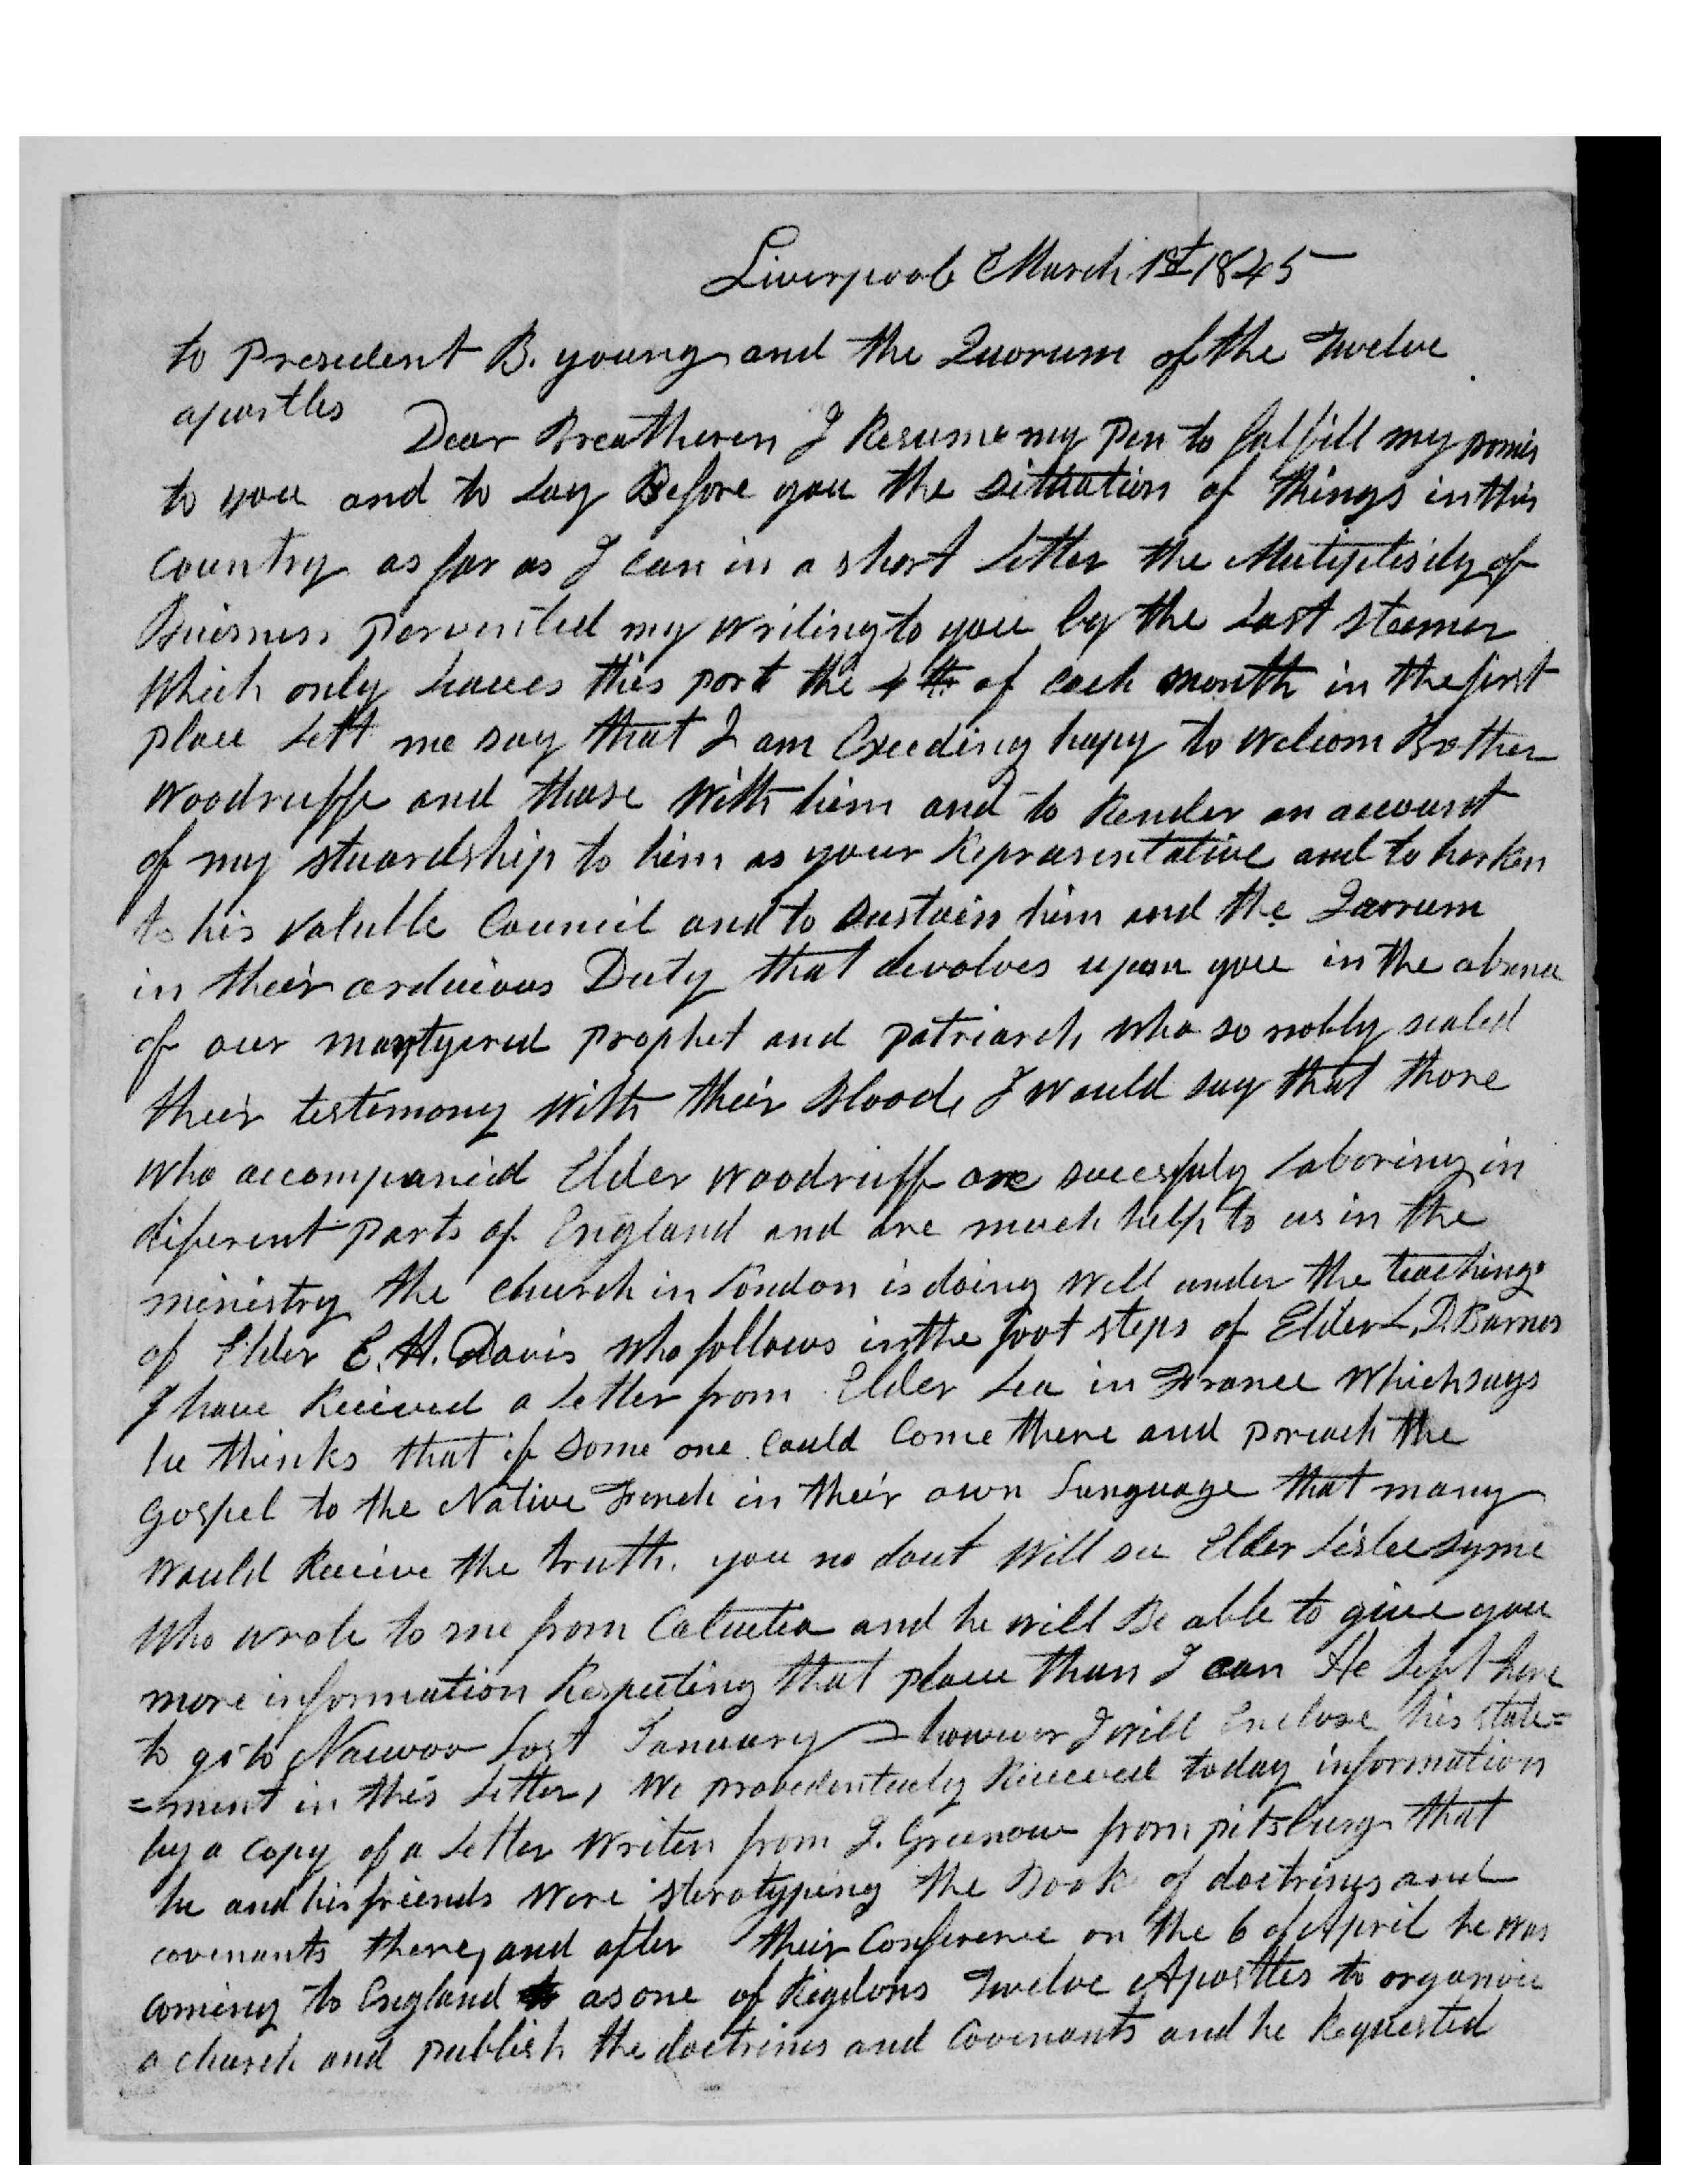 Liverpool March 1st 1845
to President B. young and the Quorum of the Twelve
apostles
Dear Breatheren I Resume my Pen to fulfill my promis
to you and to Lay Before you the situation of things in this
country as far as I can in a short Letter the Mutiplisity of
Buisness pervented my writing to you by the Last steamer
Which only Leaves this port the 4th of each month in the first
place Lett me say that I am Exceeding hapy to welcom Bother
Woodruff and those With him and to Render an account
of my stuardship to him as your Reprasentative and to harken
to his valuble Council and to sustain him and the Quorum
in their arduious Duty that devolves upon you in the absence
of our martyered prophet and patriarch who so nobly sealed
their testimony With their Blood, I would say that those
who accompanied Elder Woodruff are sucessfuly Laboring in
diferent parts of England and are much help to us in the
ministry the church in London is doing Well under the teachings
of Elder E. H. Davis who follows in the foot steps of Elder L. D. Barnes
I have Recieved a Letter from Elder Lea in France Which says
he thinks that if some one could come there and poreach the
Gospel to the Native French in their own Language that many
would Recieve the truth. you no dout Will see Elder Lislee syme
Who wrote to me from Calcutta and he will Be able to give you
more information Respecting that place than I can He Left here
to go to Nauvoo Last January - however I will Enclose his state=
=ment in this Letter, We provedentualy Recieved today information
by a copy of a Letter Writen from J. Greenow from pitsburg that
he and his friends Were sterotyping the Book of doctrines and
covenants there, and after their Conference on the 6 of April he was
coming to England to as one of Rigdons Twelve Apostles to organise
a church and publish the doctrines and Covenants and he Requested